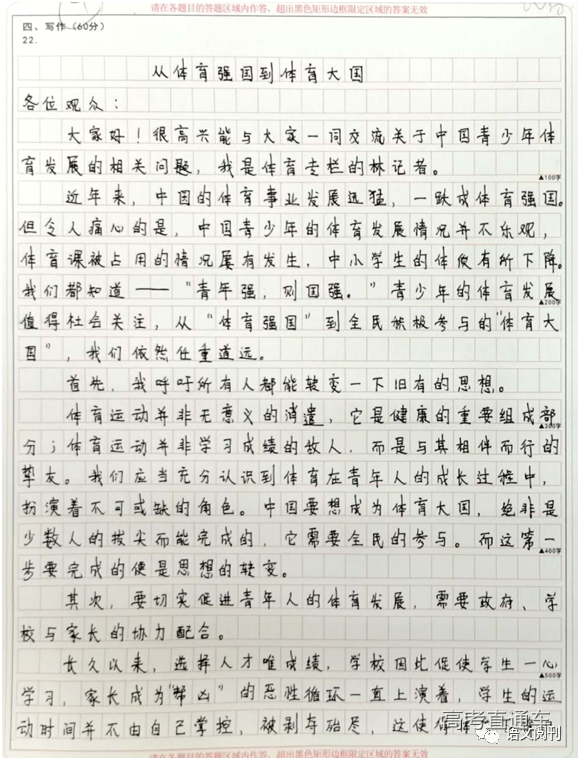 请在各题目的答题区域内作答，超出黑色矩形边框限定区域的答案无效
四、写作（60分）
22.
从体育强国到体育大国
各位观众：
大家好！很高兴能与大家一同交流关于中国青少年体
育发展的相关问题，我是体育专栏的林记者。
▲100字
近年来，中国的体育事业发展迅猛，一跃成体育强国。
但令人痛心的是，中国青少年的体育发展情况并不乐观，
体育课被占用的情况屡有发生，中小学生的体质有所下降。
我们都知道——“青年强，则国强。”青少年的体育发展
▲200字
值得社会关注，从“体育强国”到全民积极参与的“体育大
国”，我们依然任重道远。
首先，我呼吁所有人都能转变一下旧有的思想。
体育运动并非无意义的消遣，它是健康的重要组成部
▲300字
分；体育运动并非学习成绩的敌人，而是与其相伴而行的
挚友。我们应当充分认识到体育在青年人的成长过程中，
扮演着不可或缺的角色。中国要想成为体育大国，绝非是
少数人的拔尖而能完成的，它需要全民的参与。而这第一
▲400字
步要完成的便是思想的转变。
其次，要切实促进青年人的体育发展，需要政府、学
校与家长的协力配合。
长久以来，选择人才唯成绩，学校因此促使学生一心
▲500字
学习，家长成为“帮凶”的恶性循环一直上演着，学生的运
动时间并不由自己掌控，被剥夺殆尽，这使得体
高考直通车
语文周刊
请在各题目的答题区域内作答，超出黑色矩形边框限定区域的答案无效